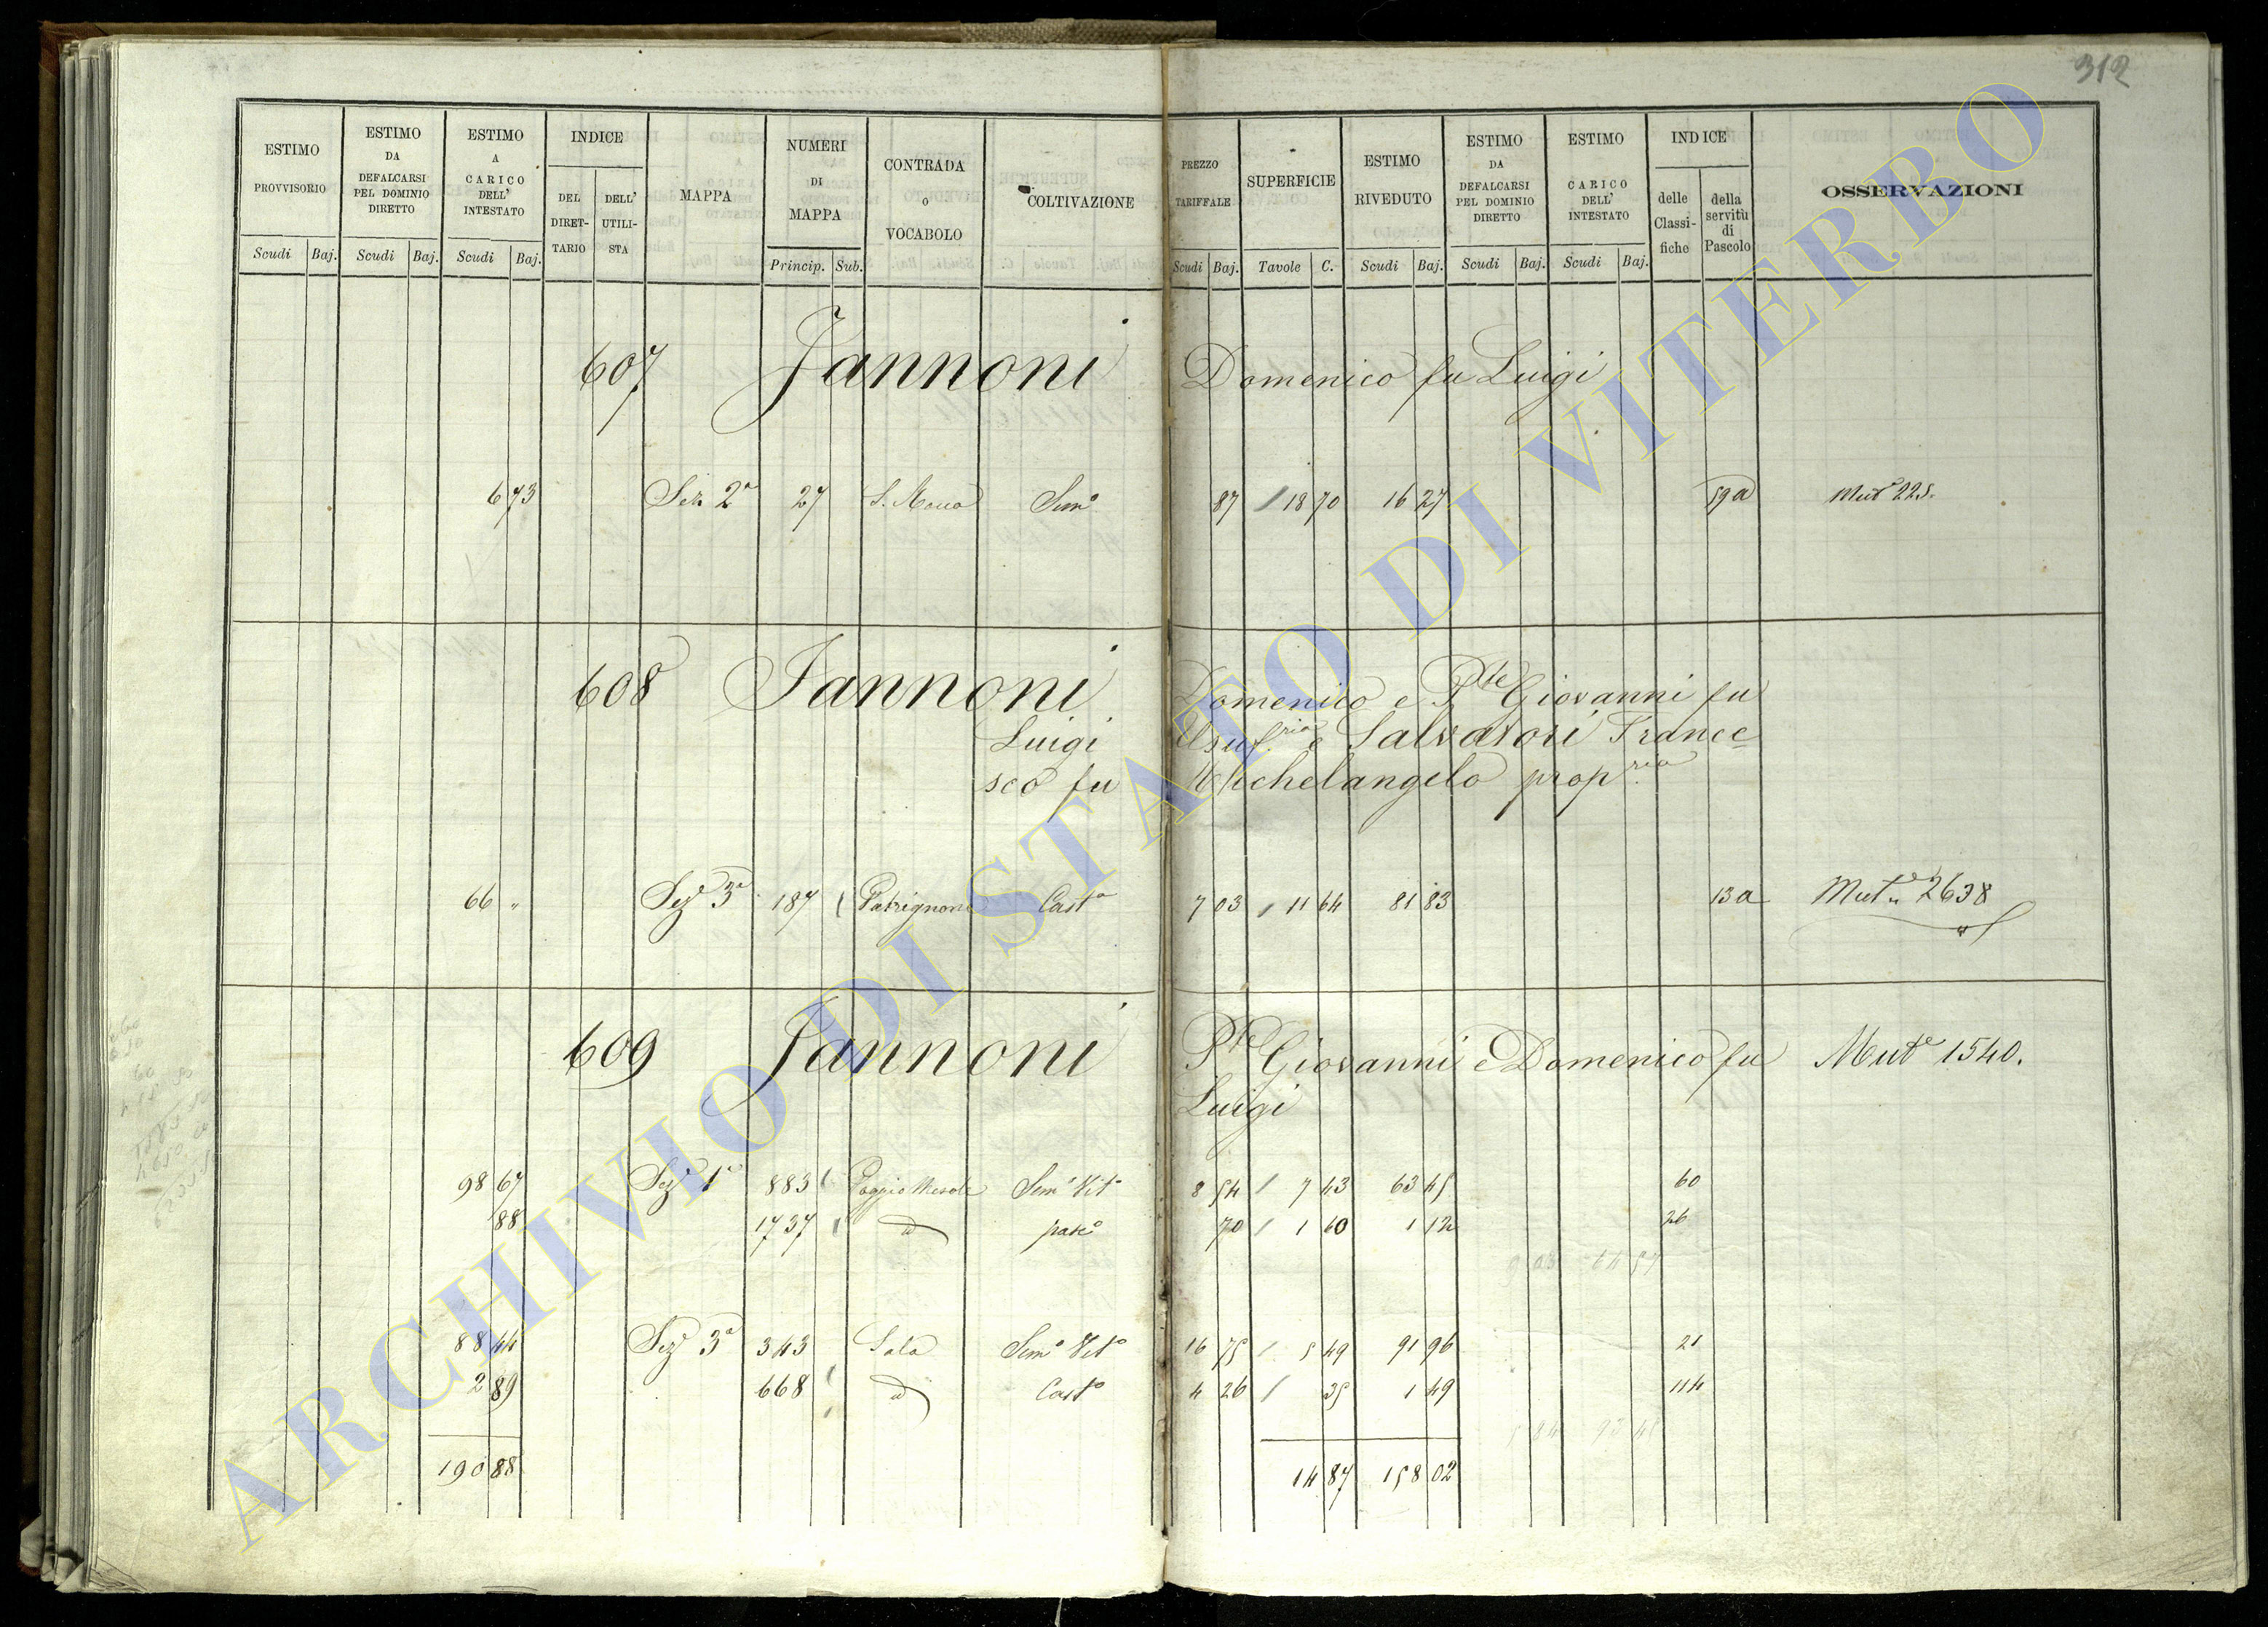 312
ESTIMO PROVVISORIO
ESTIMO DA DEFALCARSI PEL DOMINIO DIRETTO
ESTIMO A CARICO DELL' INTESTATO
INDICE
DEL DIRETTARIO
DELL' UTILISTA
MAPPA
NUMERI DI MAPPA
CONTRADA O VOCABOLO
COLTIVAZIONE
PREZZO TARIFFALE
SUPERFICIE
ESTIMO RIVEDUTO
ESTIMO DA DEFALCARSI PEL DOMINIO DIRETTO
ESTIMO A CARICO DELL' INTESTATO
INDICE
delle Classifiche
della servitù di Pascolo
OSSERVAZIONI
Scudi Baj. Scudi Baj. Scudi Baj. Princip. Sub. Scudi Baj. Tavole C. Scudi Baj. Scudi Baj. Scudi Baj.
607 Jannoni Domenico fu Luigi
6 73 Sez 2ª 27 Semº 87 18 70 16 27 59a Mutª 225.
608 Iannoni Domenico e Pte Giovanni fu
Luigi Usuf.rio e Salvatori France
sco fu Michelangelo prop.rio
66 " Sezº 3ª 187 Patrignone Castº 7 03 11 64 81 83 13a Mutª 2638
609 Jannoni Pte Giovanni e Domenico fu Mutª 1540.
Luigi
98 67 Sezº 1ª 883 Semº Vitº 8 54 7 43 63 45 60
88 1737 d pascº 70 1 60 1 12 26
9 03 64 57
88 44 Sezº 3ª 343 Sala Semº Vitº 16 75 5 49 91 96 21
2 89 668 d Castº 4 26 35 1 49 114
5 84 93 45
190 88 14 87 158 02
ARCHIVIO DI STATO DI VITERBO